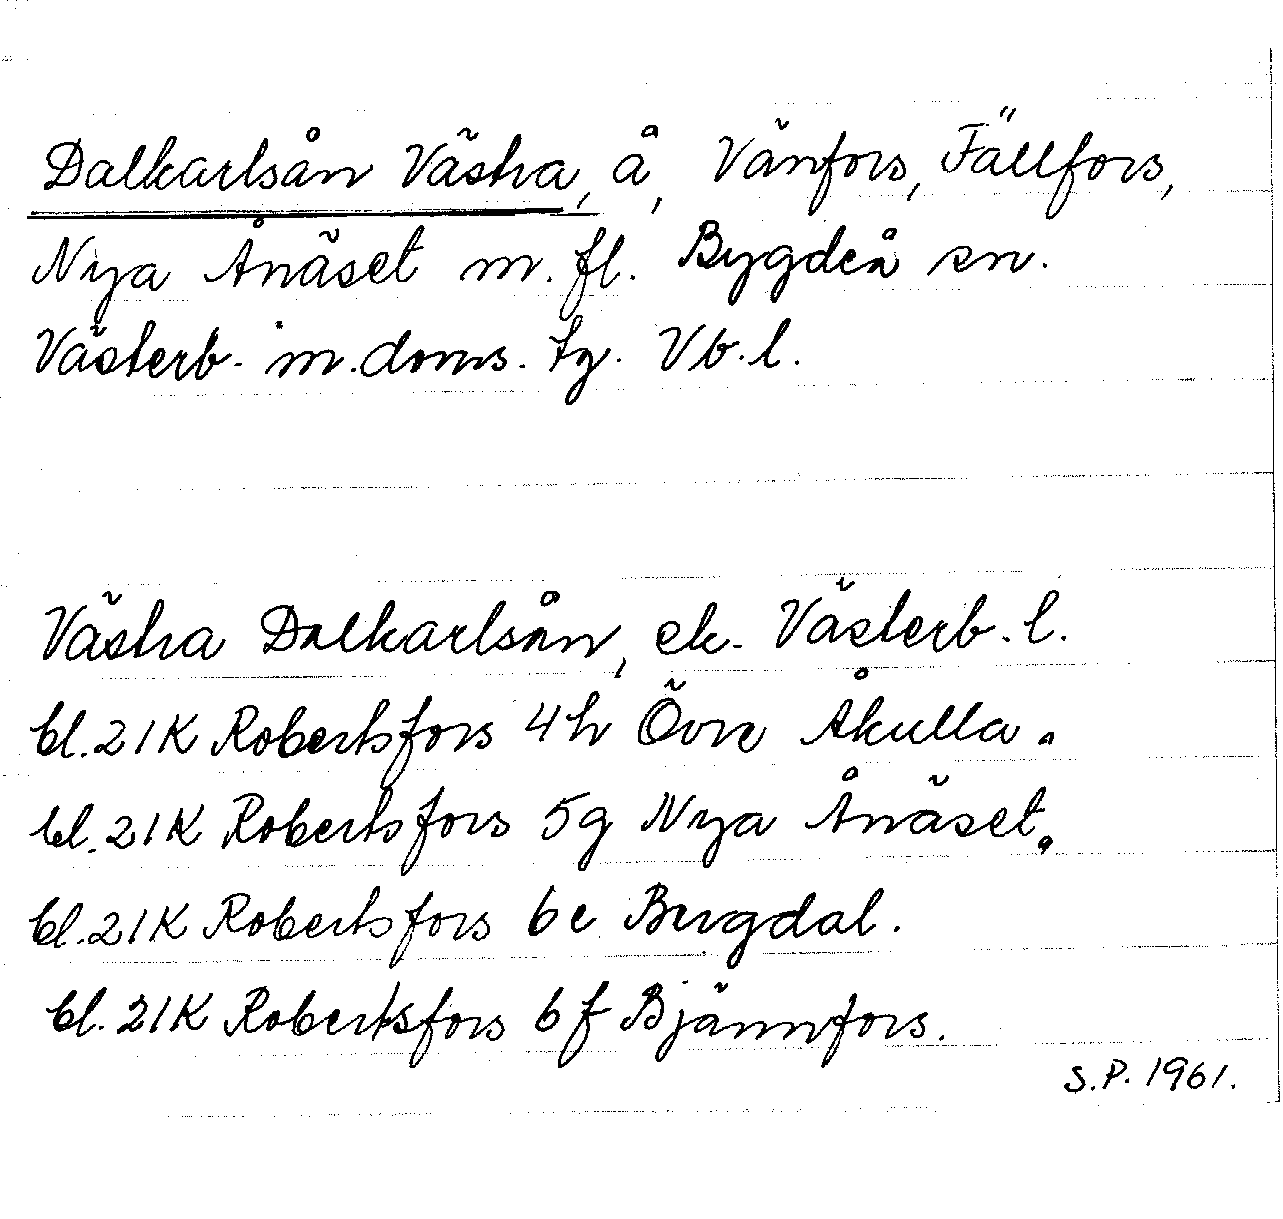 Dalkarlsån Västra, å, Vänfors, Fällfors,
Nya Ånäset m. fl. Bygdeå sn.
Västerb. m. doms. tg. Vb. l.
Västra Dalkarlsån, ek. Västerb. l.
bl. 21K Robertsfors 4h Övre Åkulla.
bl. 21K Robertsfors 5g Nya Ånäset.
bl. 21K Robertsfors 6e Bergdal.
bl. 21K Robertsfors 6f Bjännfors.
S.P. 1961.